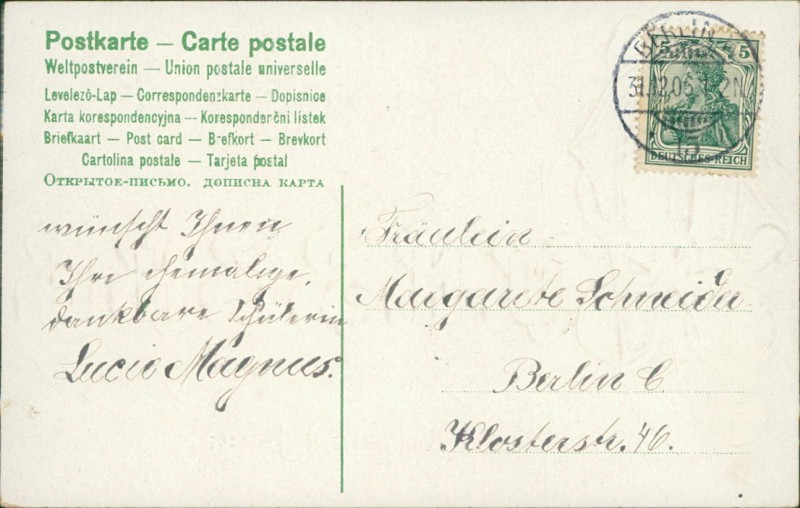 Postkarte — Carte postale
Weltpostverein — Union postale universelle
Levelező-Lap — Correspondenzkarte — Dopisnice
Karta korespondencyjna — Korespondenční lístek
Briefkaart — Post card — Brefkort — Brevkort
Cartolina postale — Tarjeta postal
Открытое-письмо. дописна карта
wünscht Ihnen
Ihre ehemalige,
dankbare Schülerin
Lucie Magnus.
BERLIN
31.12.06
15
5 5
DEUTSCHES REICH
Fräulein
Margarete Schneider
Berlin C
Klosterstr. 46.